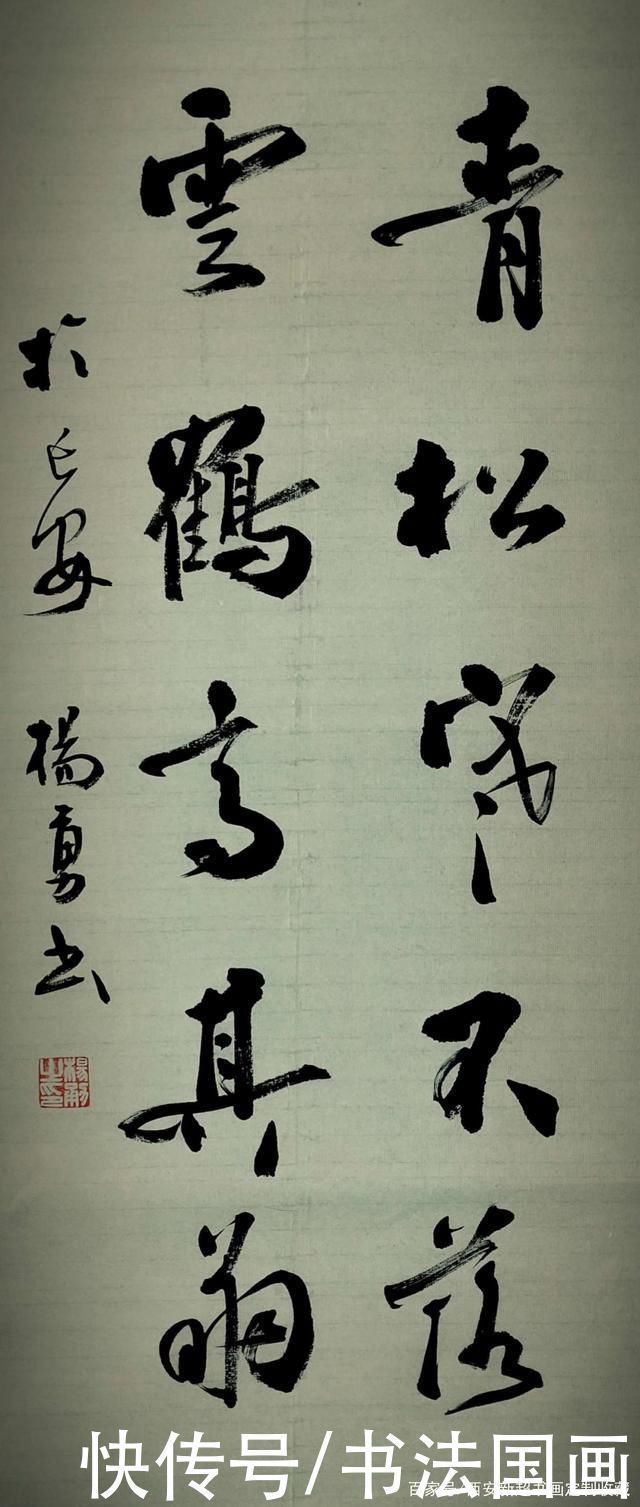 青松寒不落
雲鶴高其翔
於长安 楊勇书
楊勇之印
快传号/书法国画
百家号/西安新超书画定制收藏